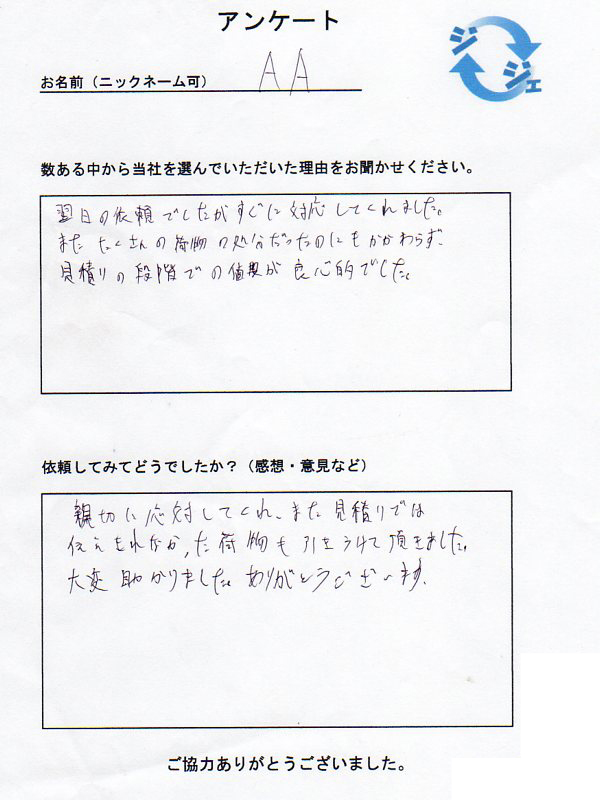 アンケート
ジジェ
お名前（ニックネーム可） AA
数ある中から当社を選んでいただいた理由をお聞かせください。
翌日の依頼でしたがすぐに対応してくれました。
また たくさんの荷物の処分だったのにもかかわらず、
見積りの段階での値段が良心的でした。
依頼してみてどうでしたか？（感想・意見など）
親切に応対してくれ、また見積りでは
伝えきれなかった荷物も引きうけて頂きました。
大変助かりました。ありがとうございます。
ご協力ありがとうございました。